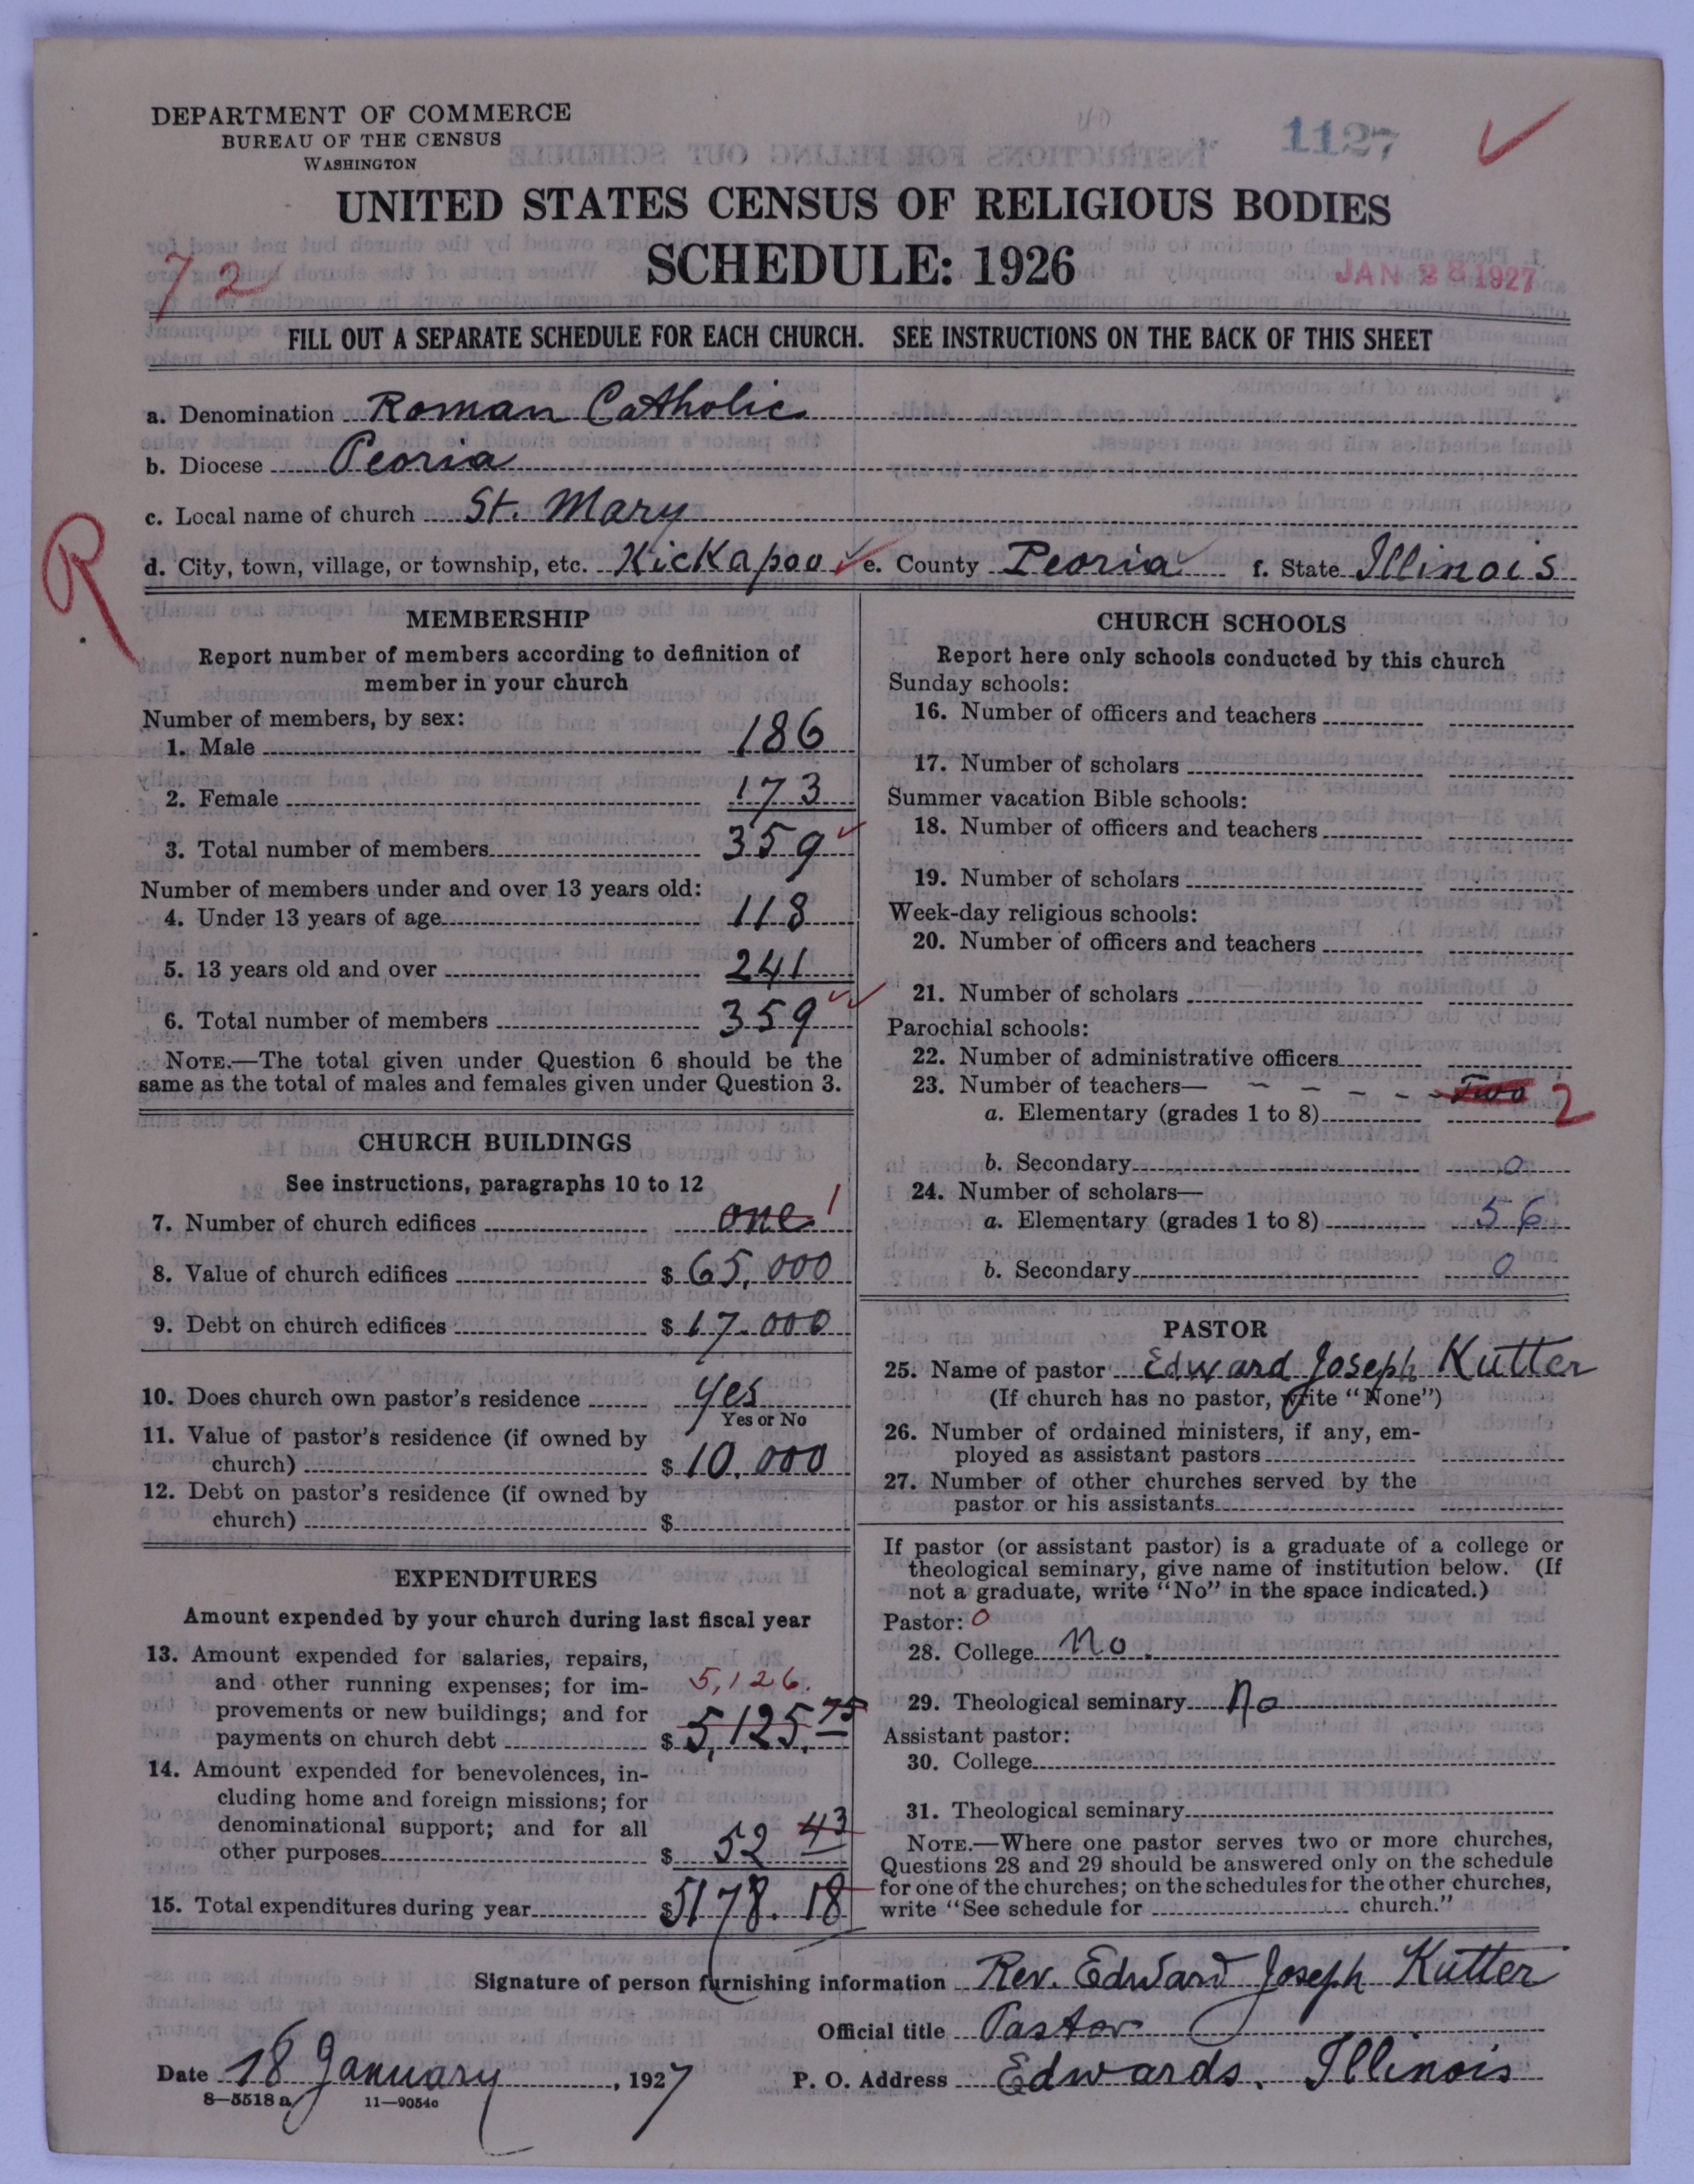 DEPARTMENT OF COMMERCE
BUREAU OF THE CENSUS
WASHINGTON
40
1127
UNITED STATES CENSUS OF RELIGIOUS BODIES
SCHEDULE: 1926
72
JAN 28 1927
FILL OUT A SEPARATE SCHEDULE FOR EACH CHURCH. SEE INSTRUCTIONS ON THE BACK OF THIS SHEET
a. Denomination Roman Catholic
b. Diocese Peoria
c. Local name of church St. Mary
R
d. City, town, village, or township, etc. Kickapoo e. County Peoria f. State Illinois
MEMBERSHIP
Report number of members according to definition of
member in your church
Number of members, by sex:
1. Male 186
2. Female 173
3. Total number of members 359
Number of members under and over 13 years old:
4. Under 13 years of age 118
5. 13 years old and over 241
6. Total number of members 359
NOTE.—The total given under Question 6 should be the
same as the total of males and females given under Question 3.
CHURCH BUILDINGS
See instructions, paragraphs 10 to 12
7. Number of church edifices one 1
8. Value of church edifices $ 65,000
9. Debt on church edifices $ 17.000
10. Does church own pastor's residence yes
Yes or No
11. Value of pastor's residence (if owned by
church) $ 10.000
12. Debt on pastor's residence (if owned by
church) $
EXPENDITURES
Amount expended by your church during last fiscal year
13. Amount expended for salaries, repairs,
and other running expenses; for im- 5,126.
provements or new buildings; and for
payments on church debt $ 5,125.75
14. Amount expended for benevolences, in-
cluding home and foreign missions; for
denominational support; and for all
other purposes $ 52 43
15. Total expenditures during year $ 5178.18
CHURCH SCHOOLS
Report here only schools conducted by this church
Sunday schools:
16. Number of officers and teachers
17. Number of scholars
Summer vacation Bible schools:
18. Number of officers and teachers
19. Number of scholars
Week-day religious schools:
20. Number of officers and teachers
21. Number of scholars
Parochial schools:
22. Number of administrative officers
23. Number of teachers— – – – – Two 2
a. Elementary (grades 1 to 8)
b. Secondary 0
24. Number of scholars—
a. Elementary (grades 1 to 8) 56
b. Secondary 0
PASTOR
25. Name of pastor Edward Joseph Kutter
(If church has no pastor, write "None")
26. Number of ordained ministers, if any, em-
ployed as assistant pastors
27. Number of other churches served by the
pastor or his assistants
If pastor (or assistant pastor) is a graduate of a college or
theological seminary, give name of institution below. (If
not a graduate, write "No" in the space indicated.)
Pastor: 0
28. College No.
29. Theological seminary No
Assistant pastor:
30. College
31. Theological seminary
NOTE.—Where one pastor serves two or more churches,
Questions 28 and 29 should be answered only on the schedule
for one of the churches; on the schedules for the other churches,
write "See schedule for church."
Signature of person furnishing information Rev. Edward Joseph Kutter
Official title Pastor
Date 18 January, 1927 P. O. Address Edwards. Illinois
8—5518 a 11—9054c